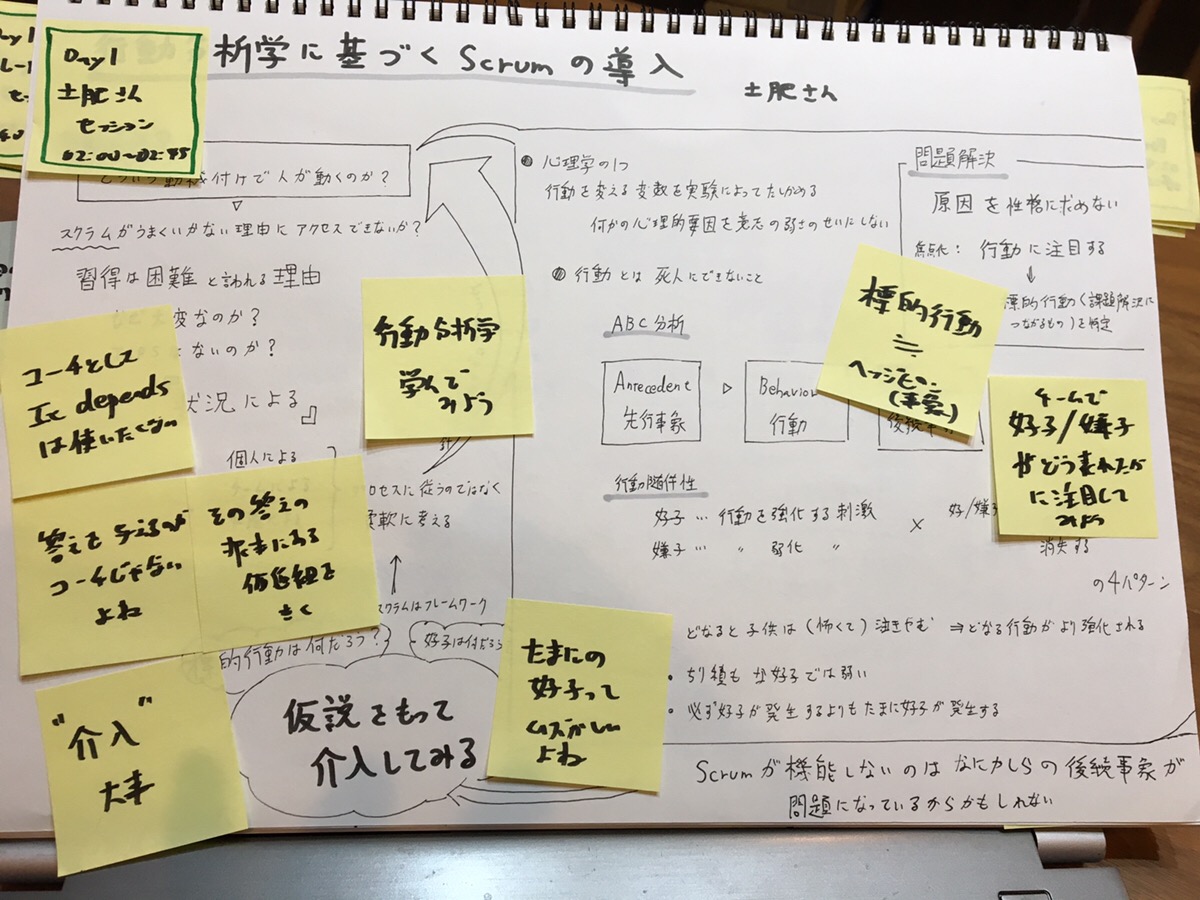 Day1
土肥さん
セッション
02:00〜02:45
析学に基づくScrumの導入
土肥さん
動機付けで人が動くのか?
スクラムがうまくいかない理由にアクセスできないか?
習得は困難と言われる理由
変なのか?
ないのか?
状況による』
個人による
ロセスに従うのではなく
柔軟に考える
スクラムはフレームワーク
的行動は何だろう?
好子は何だろう
仮説をもって
介入してみる
コーチとして
It depends
は使いたくない
答えを与えるのが
コーチじゃない
よね
その答えの
根本にある
価値観を
きく
"介入"
大事
行動分析学
学んで
みよう
たまにの
好子って
ムズかしい
よね
心理学の1つ
行動を変える変数を実験によってたしかめる
何かの心理的要因を意志の弱さのせいにしない
行動とは 死人にできないこと
ABC分析
Anrecedent
先行事象
Behavior
行動
後続事象
行動随伴性
好子… 行動を強化する刺激
嫌子… 〃 弱化 〃
×
好/嫌子
消失する
の4パターン
どなると子供は(怖くて)泣きやむ ⇒どなる行動がより強化される
・ちり積もな好子では弱い
・必ず好子が発生するよりもたまに好子が発生する
問題解決
原因を性格に求めない
焦点化: 行動に注目する
標的行動(課題解決に
つながるもの)を特定
標的行動
≒
(事象)
チームで
好子/嫌子
がどう表れたか
に注目して
みよう
Scrumが機能しないのはなにかしらの後続事象が
問題になっているからかもしれない